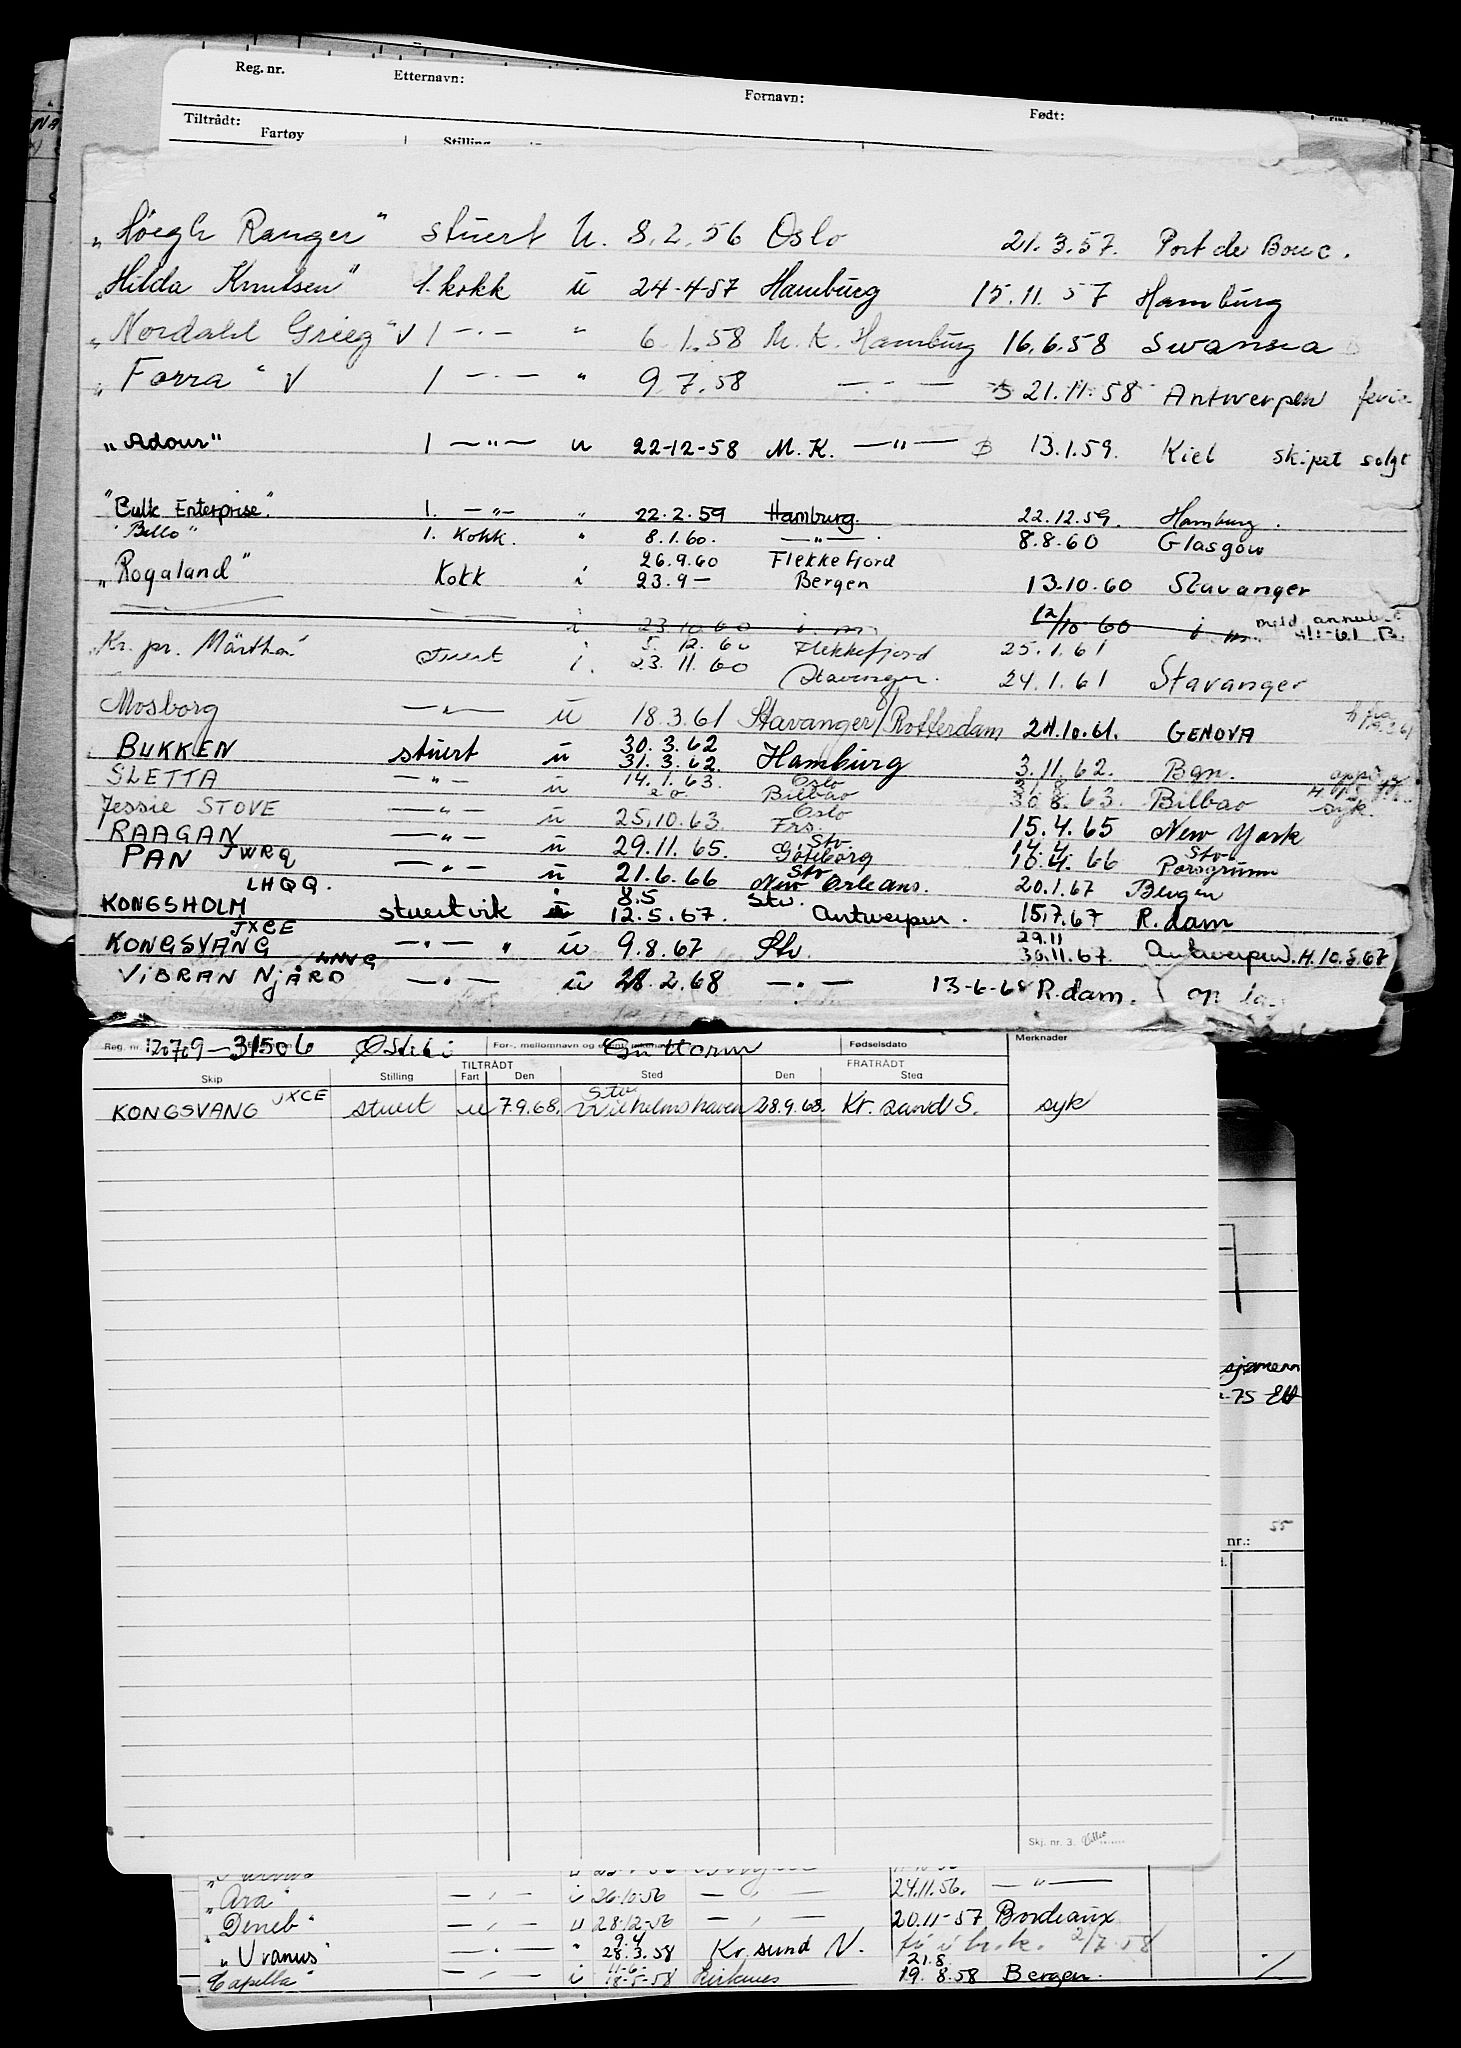 Reg. nr. Etternavn: Fornavn: Født:
Tiltrådt: Fartøy Stilling
„Höegh Ranger" stuert U. 8.2.56 Oslo 21.3.57. Port de Bouc.
„Hilda Knudsen" 1. kokk ü 24-4-57 Hamburg 15.11.57 Hamburg
„Nordahl Grieg" √ 1 —·— " 6.1.58 M.K. Hamburg 16.6.58 Swansea
„Forra" √ 1 —·— " 9.7.58 —·— 21.11.58 Antwerpen
„Adour" 1 —"— u 22-12-58 M.K. —"— 13.1.59. Kiel skipet solgt
"Bulk Enterprise". 1. —"— " 22.2.59 Hamburg. 22.12.59. Hamburg.
"Bello" 1. Kokk. " 8.1.60. —"— 8.8.60 Glasgow
26.9.60 Flekkefjord
„Rogaland" Kokk i 23.9— Bergen 13.10.60 Stavanger
i 23.10.60 12/10 60 meld. annul
5.12.60 Flekkefjord 25.1.61
„Kr. pr. Märtha" Stuert i. 23.11.60 Stavanger. 24.1.61 Stavanger
Mosborg —"— ü 18.3.61 Stavanger/Rotterdam 24.10.61. GENOVA
30.3.62
BUKKEN stuert ü 31.3.62. Hamburg 3.11.62. Bgn.
SLETTA —"— ü 14.1.63. Oslo Bilbao 30.8.63. Bilbao syk.
Jessie STOVE —"— ü 25.10.63. Oslo Frs. 15.4.65 New York
RAAGAN JWRQ —"— ü 29.11.65. Stv. Göteborg 14.4. 66 Stv Porsgrunn
PAN LHQQ. —"— ü 21.6.66 Stv New Orleans. 20.1.67 Bergen
KONGSHOLM stuertvik 8.5 12.5.67. Stv. Antwerpen. 15.7.67 R.dam
KONGSVANG JXCE —·— " ü 9.8.67 Stv. 29.11 30.11.67. Antwerpen. H.10.8.67
VIBRAN NJÅRD —·— ü 28.2.68 —·— 13-6-68 R.dam.
Reg. nr. 120709-31506 Østebi For-, mellomnavn og Guttorm Fødselsdato Merknader
TILTRÅDT FRATRÅDT
Skip Stilling Fart Den Sted Den Sted
KONGSVANG JXCE stuert u 7.9.68. Stv Wilhelmshaven 28.9.68. Kr. sand S. syk
sjømenn
-75
55
nr.:
Skj. nr. 3.
„Ara" —,— i 26.10.56 —,— 24.11.56. —"—
„Deneb" —,— u 28.12.56 —,— 20.11-57 Bordeaux
9.4
„Uranus" —·— " 28.3.58 Kr.sund N. 2/7.58
11-6. 21.8.
Capella" —,— i 18-5-58 Kirkenes 19.8.58 Bergen.